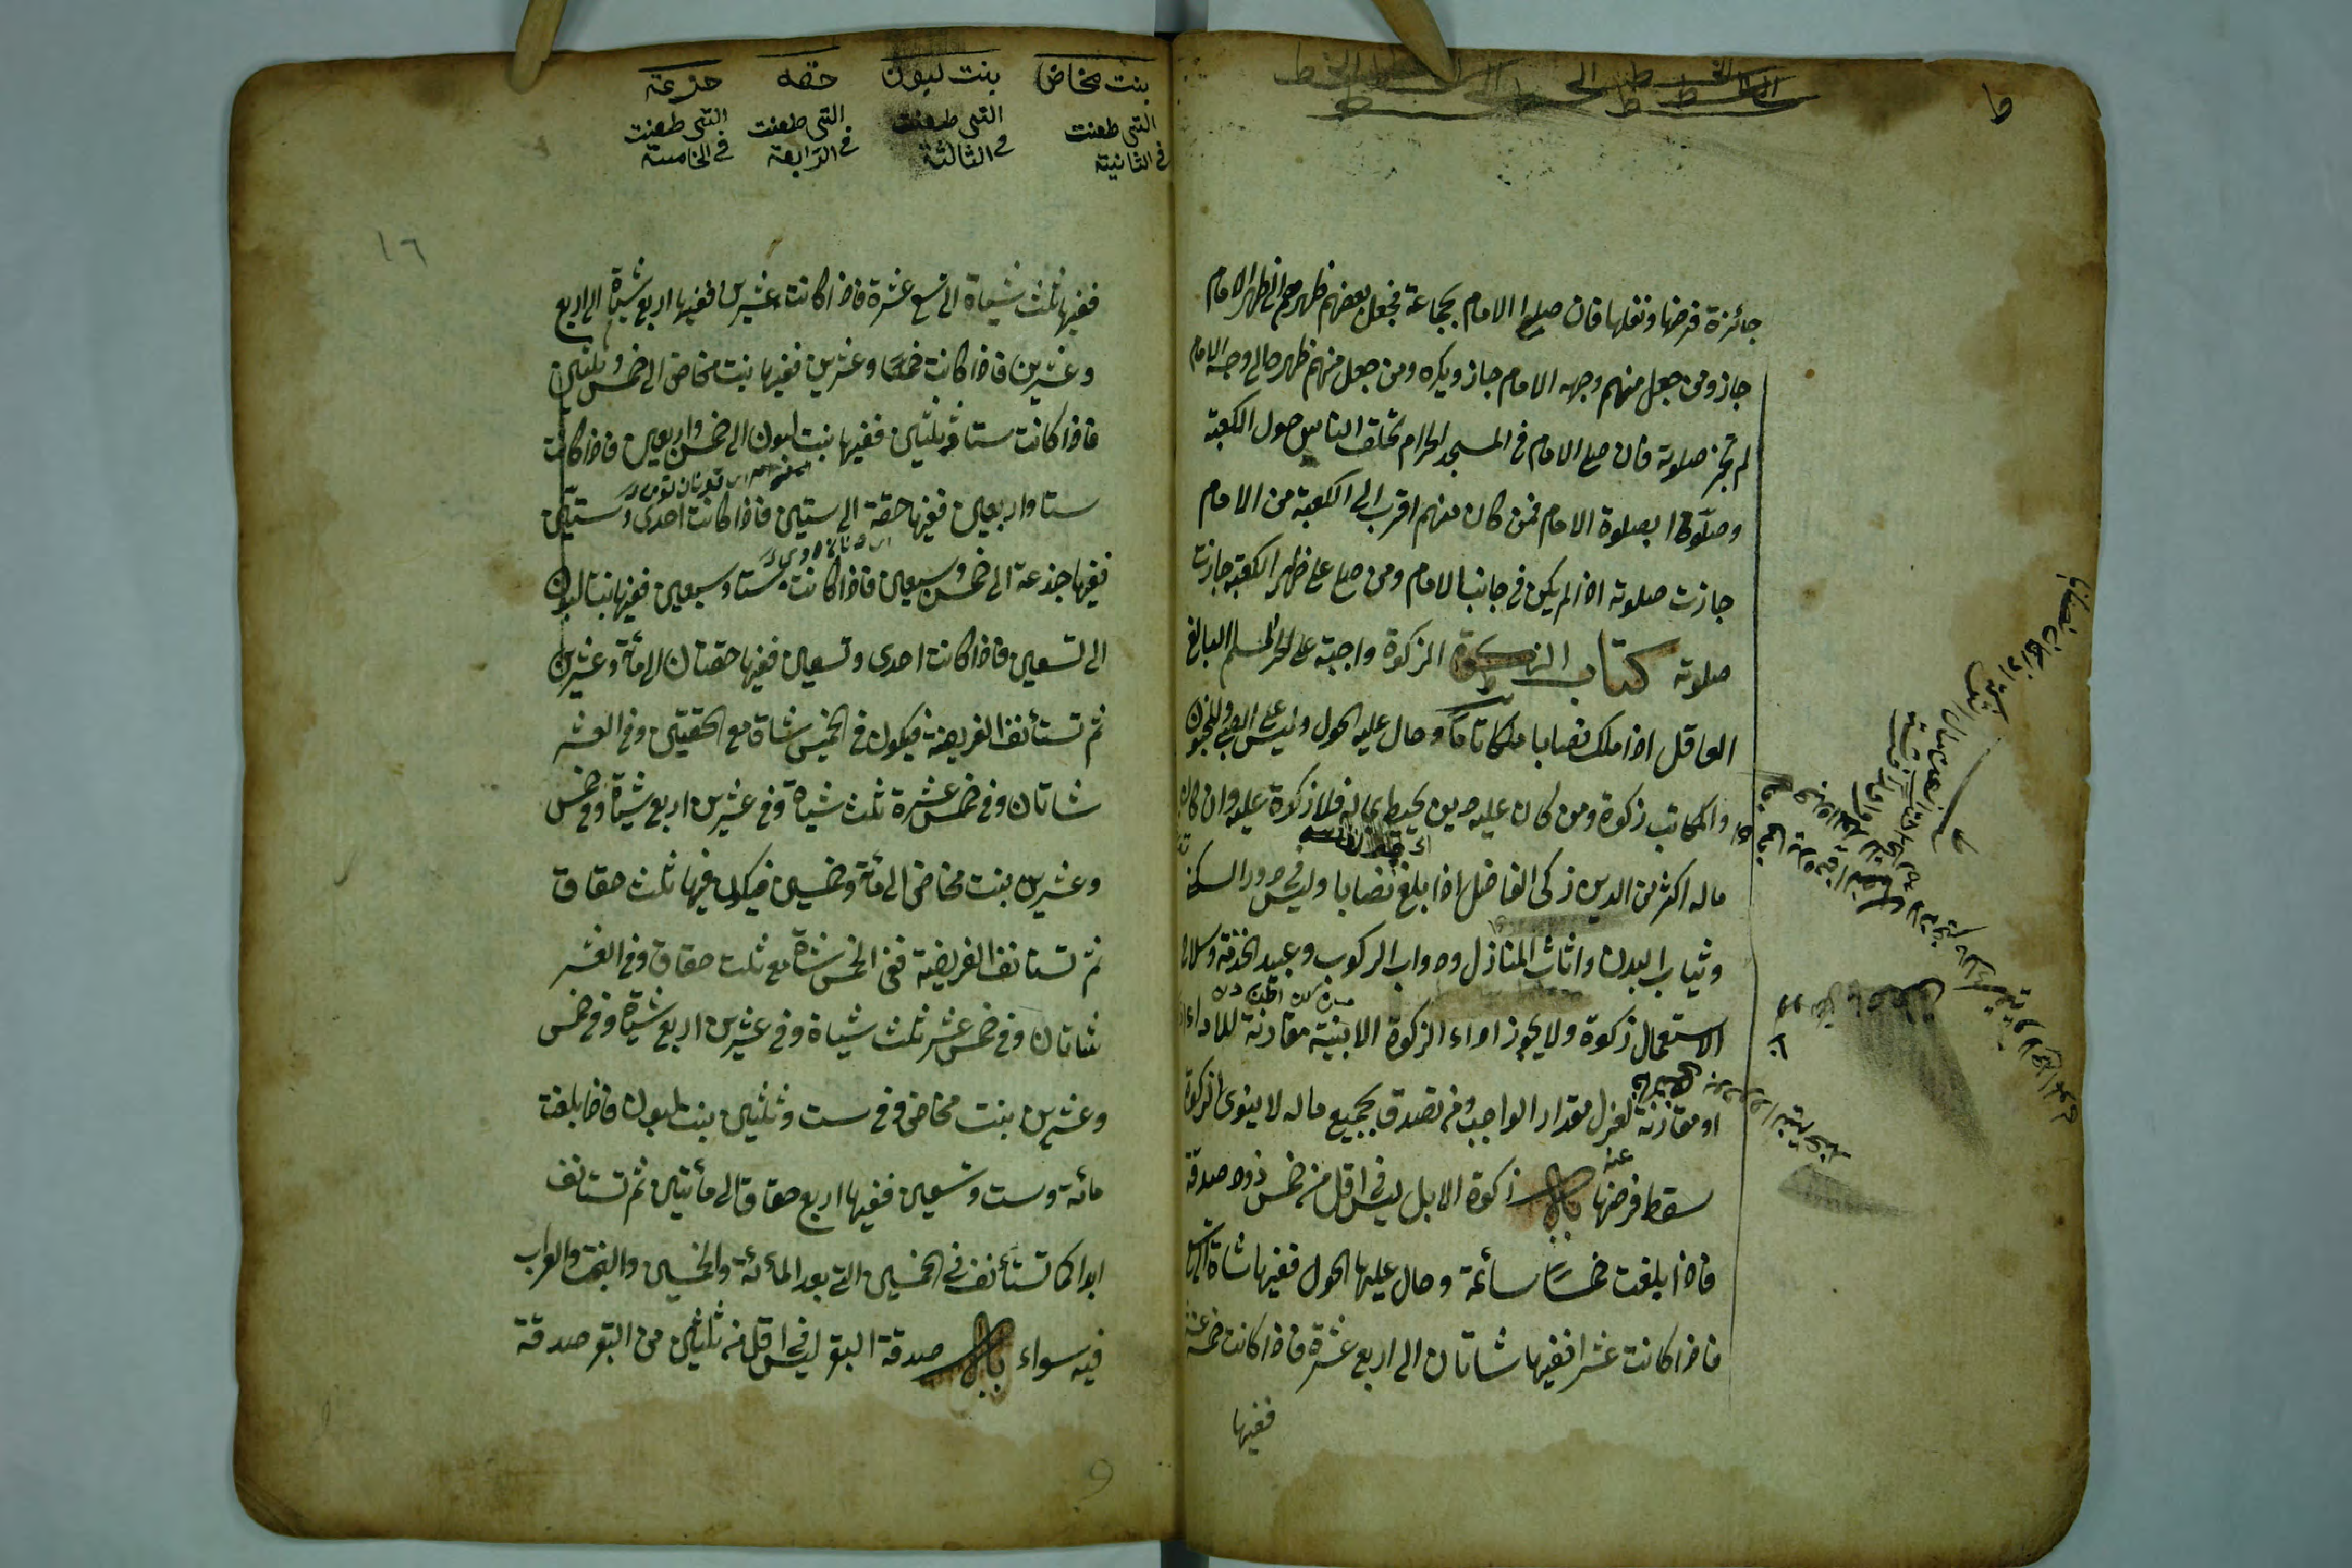 جائزة فرضها ونفلها فان صلى الامام بجماعة فجعل بعضهم ظهره الى ظهر الامام
جاز ومن جعل منهم وجهه الامام جاز ويكره ومن جعل منهم ظهره الى وجه الامام
لم تجز صلوته فان صلى الامام فى المسجد الحرام تحلق الناس حول الكعبة
وصلّوا بصلوة الامام فمن كان منهم اقرب الى الكعبة من الامام
جازت صلوته اذا لم يكن فى جانب الامام ومن صلى على ظهر الكعبة جازت
صلوته كتاب الزكوة الزكوة واجبة على الحر المسلم البالغ
العاقل اذا ملك نصابا ملكا تامّا وحال عليه الحول وليس على الصبى والمجنون
والمكاتب زكوة ومن كان عليه دين يحيط بماله فلا زكوة عليه وان كان
ماله اكثر من الدين زكى الفاضل اذا بلغ نصابا وليس فى دور السكنى
وثياب البدن واثاث المنازل ودواب الركوب وعبيد الخدمة وسلاح
الاستعمال زكوة ولا يجوز اداء الزكوة الا بنية مقارنة للاداء
او مقارنة لعزل مقدار الواجب ومن تصدق بجميع ماله لا ينوى الزكوة
سقط فرضها عنه باب زكوة الابل ليس فى اقل من خمس ذود صدقة
فاذا بلغت خمسا سائمة وحال عليها الحول ففيها شاة الى تسع
فاذا كانت عشرا ففيها شاتان الى اربع عشرة فاذا كانت خمس عشرة
ففيها
بنت مخاض بنت لبون حقه جذعة
التى طعنت فى الثانية
التى طعنت فى الثالثة
التى طعنت فى الرابعة
التى طعنت فى الخامسة
١٦
ففيها ثلث شياة الى تسع عشرة فاذا كانت عشرين ففيها اربع شياة الى اربع
وعشرين فاذا كانت خمسا وعشرين ففيها بنت مخاض الى خمس وثلثين
فاذا كانت ستا وثلثين ففيها بنت لبون الى خمس واربعين فاذا كانت
ستا واربعين ففيها حقة الى ستين فاذا كانت احدى وستين
ففيها جذعة الى خمس وسبعين فاذا كانت ستا وسبعين ففيها بنتا لبون
الى تسعين فاذا كانت احدى وتسعين ففيها حقتان الى مأة وعشرين
ثم تستأنف الفريضة فيكون فى الخمس شاة مع الحقتين وفى العشر
شاتان وفى خمس عشرة ثلث شياة وفى عشرين اربع شياة وفى خمس
وعشرين بنت مخاض الى مأة وخمسين فيكون فيها ثلث حقاق
ثم تستانف الفريضة ففى الخمس شاة مع ثلث حقاق وفى العشر
شاتان وفى خمس عشر ثلث شياة وفى عشرين اربع شياة وفى خمس
وعشرين بنت مخاض وفى ست وثلثين بنت لبون فاذا بلغت
مائة وست وتسعين ففيها اربع حقاق الى مأتين ثم تستانف
ابدا كما تستأنف فى الخمسين التى بعد المائة والخمسين والبخت والعراب
فيه سواء باب صدقة البقر ليس فى اقل من ثلثين من البقر صدقة